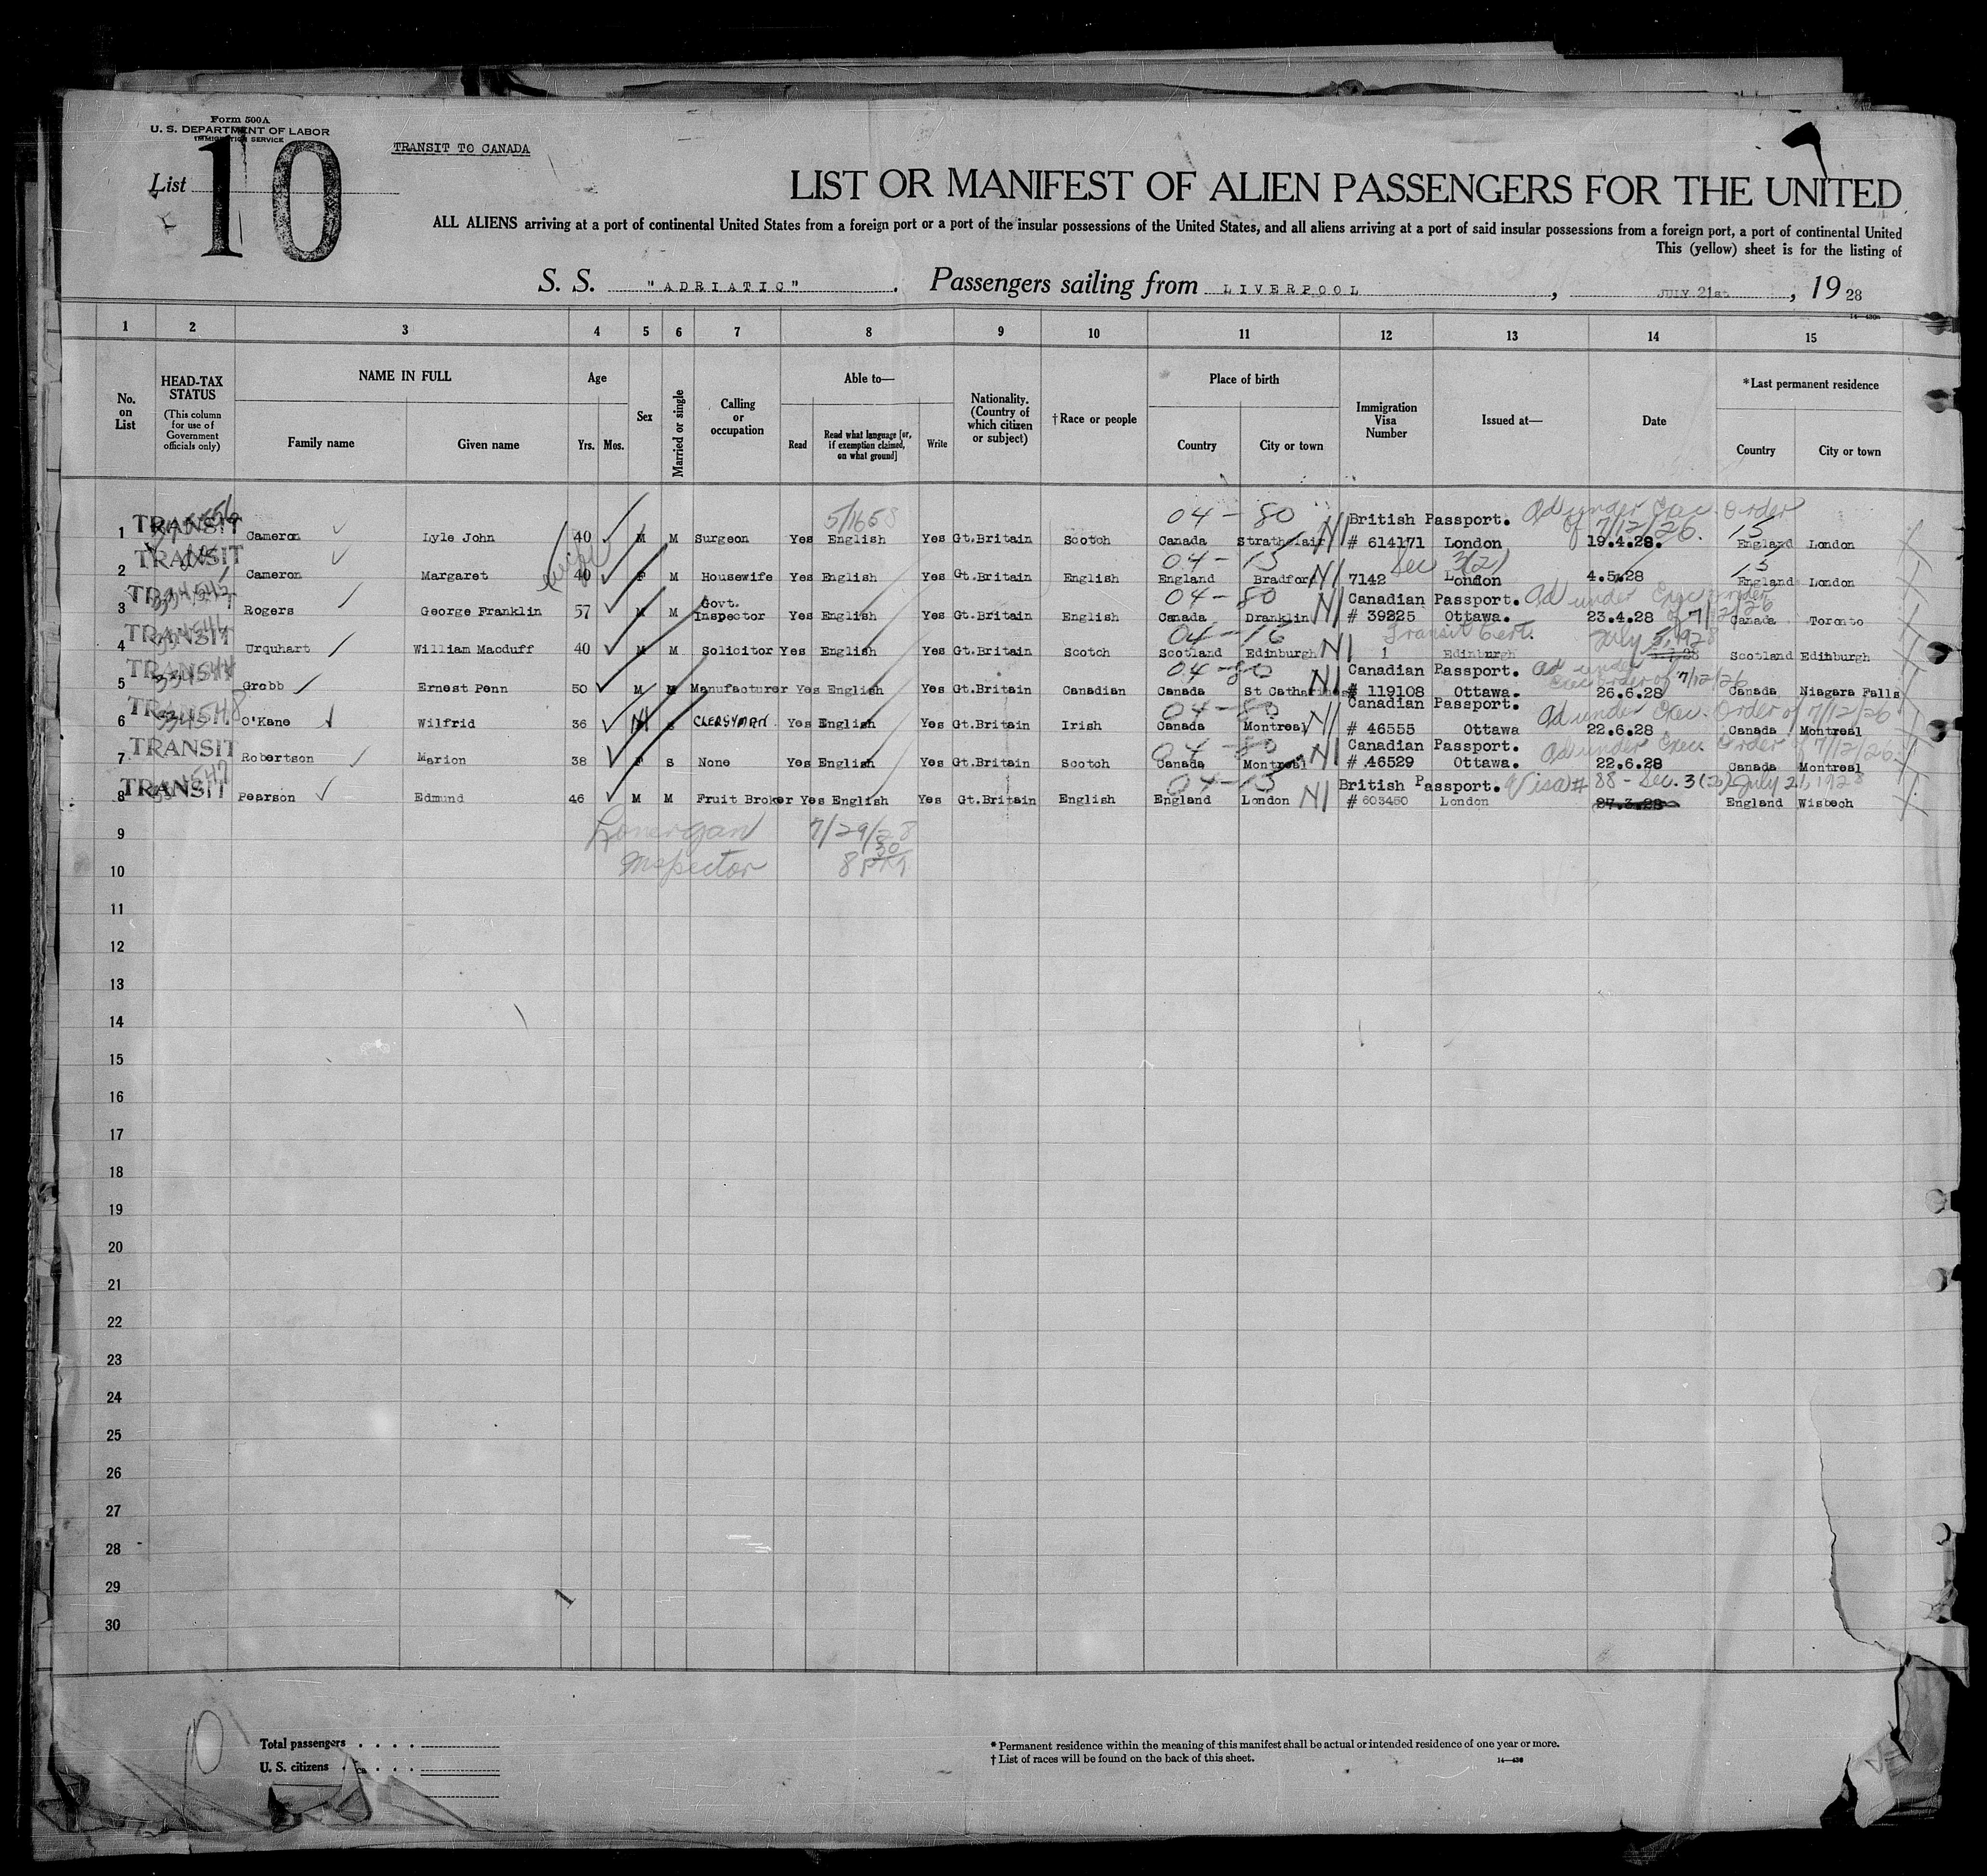 Form 500A
U. S. DEPARTMENT OF LABOR
IMMIGRATION SERVICE
TRANSIT TO CANADA
List 10
LIST OR MANIFEST OF ALIEN PASSENGERS FOR THE UNITED
ALL ALIENS arriving at a port of continental United States from a foreign port or a port of the insular possessions of the United States, and all aliens arriving at a port of said insular possessions from a foreign port, a port of continental United
This (yellow) sheet is for the listing of
S. S. "ADRIATIC". Passengers sailing from LIVERPOOL, JULY 21st, 1928
14—430a
1 2 3 4 5 6 7 8 9 10 11 12 13 14 15
No. on List
HEAD-TAX STATUS (This column for use of Government officials only)
NAME IN FULL
Family name Given name
Age
Yrs. Mos.
Sex
Married or single
Calling or occupation
Able to—
Read Read what language [or, if exemption claimed, on what ground] Write
Nationality. (Country of which citizen or subject)
†Race or people
Place of birth
Country City or town
Immigration Visa Number
Issued at—
Date
*Last permanent residence
Country City or town
5/1658 04-80 British Passport. Ad under Exec. Order of 7/12/26. 15
1 TRANSIT Cameron Lyle John 40 M M Surgeon Yes English Yes Gt.Britain Scotch Canada Strathclair N1 # 614171 London 19.4.28. England London
wife 04-15 Sec 3(2) 15
2 TRANSIT Cameron Margaret 40 F M Housewife Yes English Yes Gt.Britain English England Bradford N1 7142 London 4.5.28 England London
04-80 Canadian Passport. Ad under Exec. Order of 7/12/26
3 TRANSIT Rogers George Franklin 57 M M Govt. Inspector Yes English Yes Gt.Britain English Canada Dranklin N1 # 39225 Ottawa. 23.4.28 Canada Toronto
04-16 Transit Cert. July 5, 1928
4 TRANSIT Urquhart William Macduff 40 M M Solicitor Yes English Yes Gt.Britain Scotch Scotland Edinburgh N1 1 Edinburgh Scotland Edinburgh
04-80 Canadian Passport. Ad under Exec order of 7/12/26
5 TRANSIT 334544 Grobb Ernest Penn 50 M M Manufacturer Yes English Yes Gt.Britain Canadian Canada St Catharines N1 # 119108 Ottawa. 26.6.28 Canada Niagara Falls
04-80 Canadian Passport. Ad under Exec. Order of 7/12/26
6 TRANSIT O'Kane Wilfrid 36 M s CLERGYMAN Yes English Yes Gt.Britain Irish Canada Montreal N1 # 46555 Ottawa 22.6.28 Canada Montreal
04-80 Canadian Passport. Ad under Exec. Order of 7/12/26
7 TRANSIT Robertson Marion 38 F S None Yes English Yes Gt.Britain Scotch Canada Montreal N1 # 46529 Ottawa. 22.6.28 Canada Montreal
04-13 British Passport. Visa# 88 - Sec. 3(3) July 21, 1928
8 TRANSIT Pearson Edmund 46 M M Fruit Broker Yes English Yes Gt.Britain English England London N1 # 603450 London 27.3.28 England Wisbech
9 Lonergan 7/29/28
10 Inspector 8 30 PM
11
12
13
14
15
16
17
18
19
20
21
22
23
24
25
26
27
28
29
30
Total passengers
U. S. citizens
* Permanent residence within the meaning of this manifest shall be actual or intended residence of one year or more.
† List of races will be found on the back of this sheet. 14—430